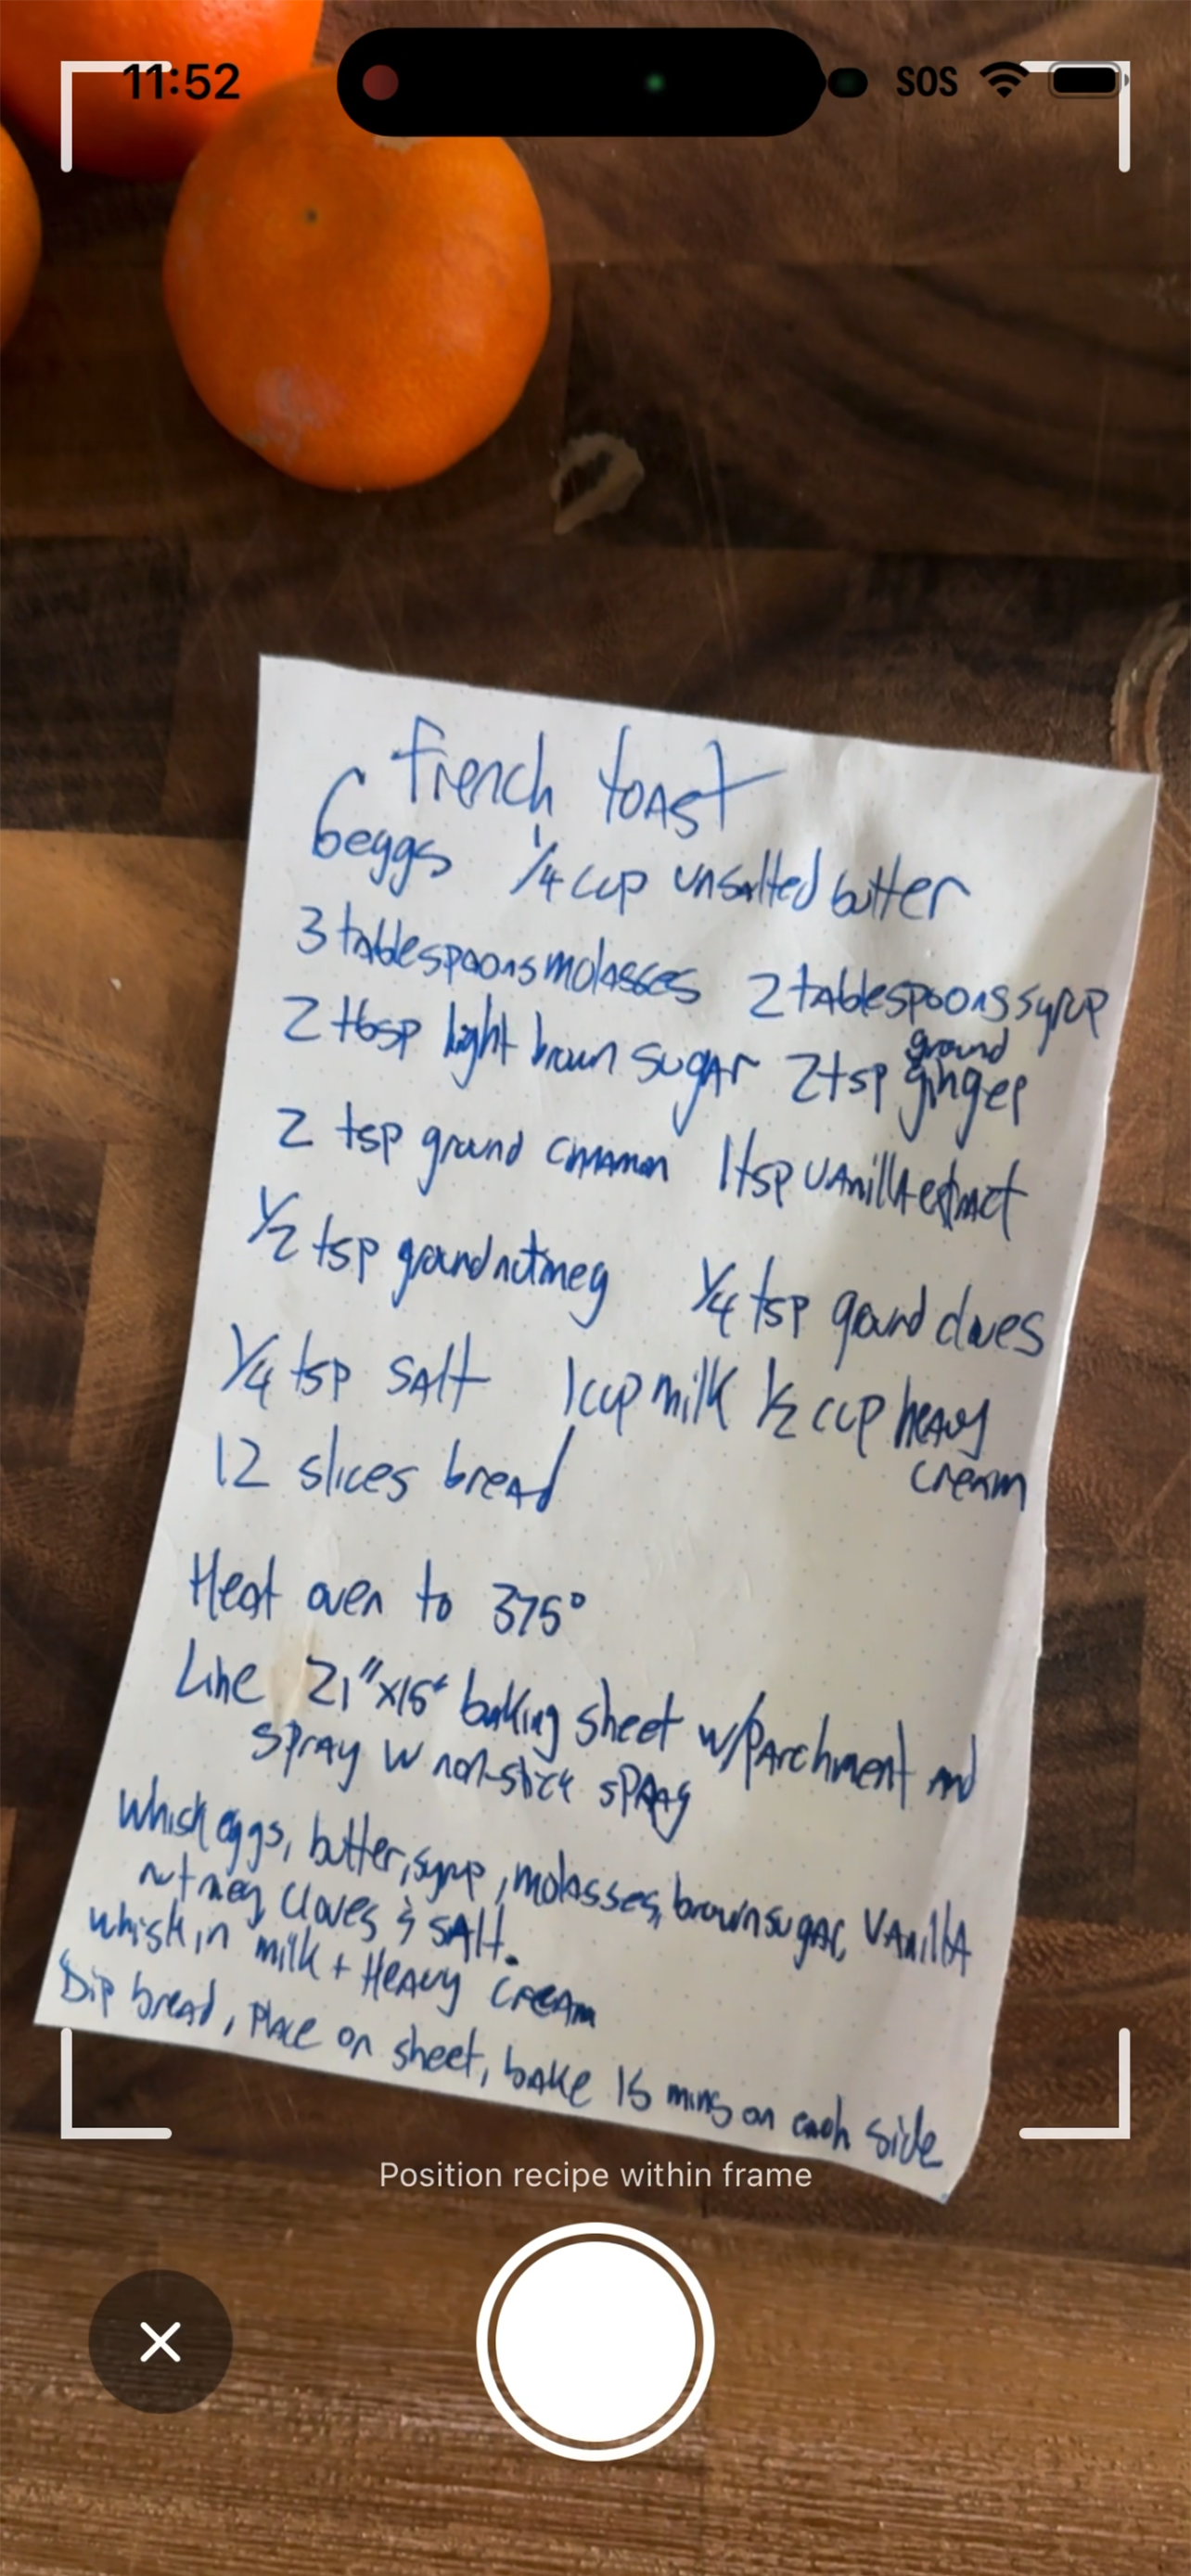 11:52 SOS
french toast
6 eggs 1/4 cup unsalted butter
3 tablespoons molasses 2 tablespoons syrup
2 tbsp light brown sugar 2 tsp ground ginger
2 tsp ground cinnamon 1 tsp vanilla extract
1/2 tsp ground nutmeg 1/4 tsp ground cloves
1/4 tsp salt 1 cup milk 1/2 cup heavy
cream
12 slices bread
Heat oven to 375°
Line 21"x15" baking sheet w/parchment and
spray w non-stick spray
Whisk eggs, butter, syrup, molasses, brown sugar, vanilla
nutmeg, cloves & salt.
whisk in milk + Heavy cream
Dip bread, place on sheet, bake 15 mins on each side
Position recipe within frame